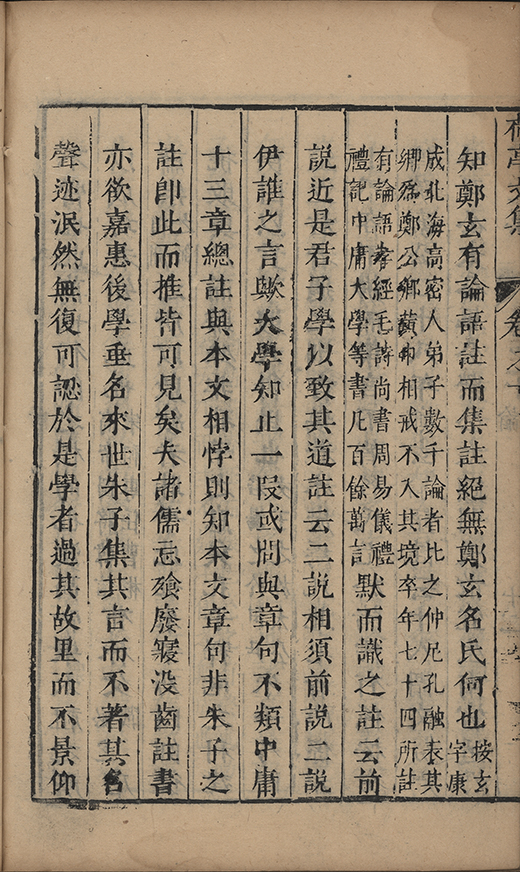 亭文集
卷之
知鄭玄有論語註而集註絕無鄭玄名氏何也
按玄
字康
成北海高密人弟子數千論者比之仲尼孔融表其
鄉爲鄭公鄉黃巾相戒不入其境卒年七十四所註
有論語孝經毛詩尚書周易儀禮
禮記中庸大學等書凡百餘萬言
默而識之註云前
說近是君子學以致其道註云二說相須前說二說
伊誰之言歟大學知止一段或問與章句不類中庸
十三章總註與本文相悖則知本文章句非朱子之
註卽此而推皆可見矣夫諸儒忘飧廢寢没齒註書
亦欲嘉惠後學垂名來世朱子集其言而不著其名
聲迹泯然無復可認於是學者過其故里而不景仰